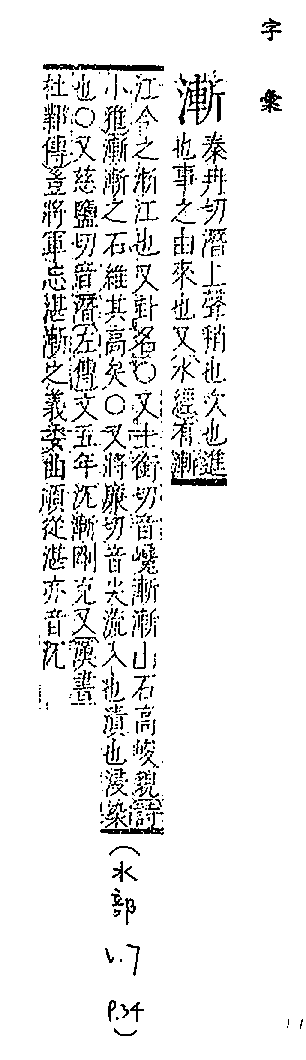 字彙
漸
秦冉切潛上聲稍也次也進
也事之由來也又水經有漸
江今之浙江也又卦名〇又士銜切音巉漸漸山石高峻貌詩
小雅漸漸之石維其高矣〇又將廉切音尖流入也漬也浸染
也〇又慈鹽切音潛左傳文五年沈漸剛克又漢書
杜鄴傳豈將軍忘湛漸之義委曲順從湛亦音沈
(水部
V.7
P.34)